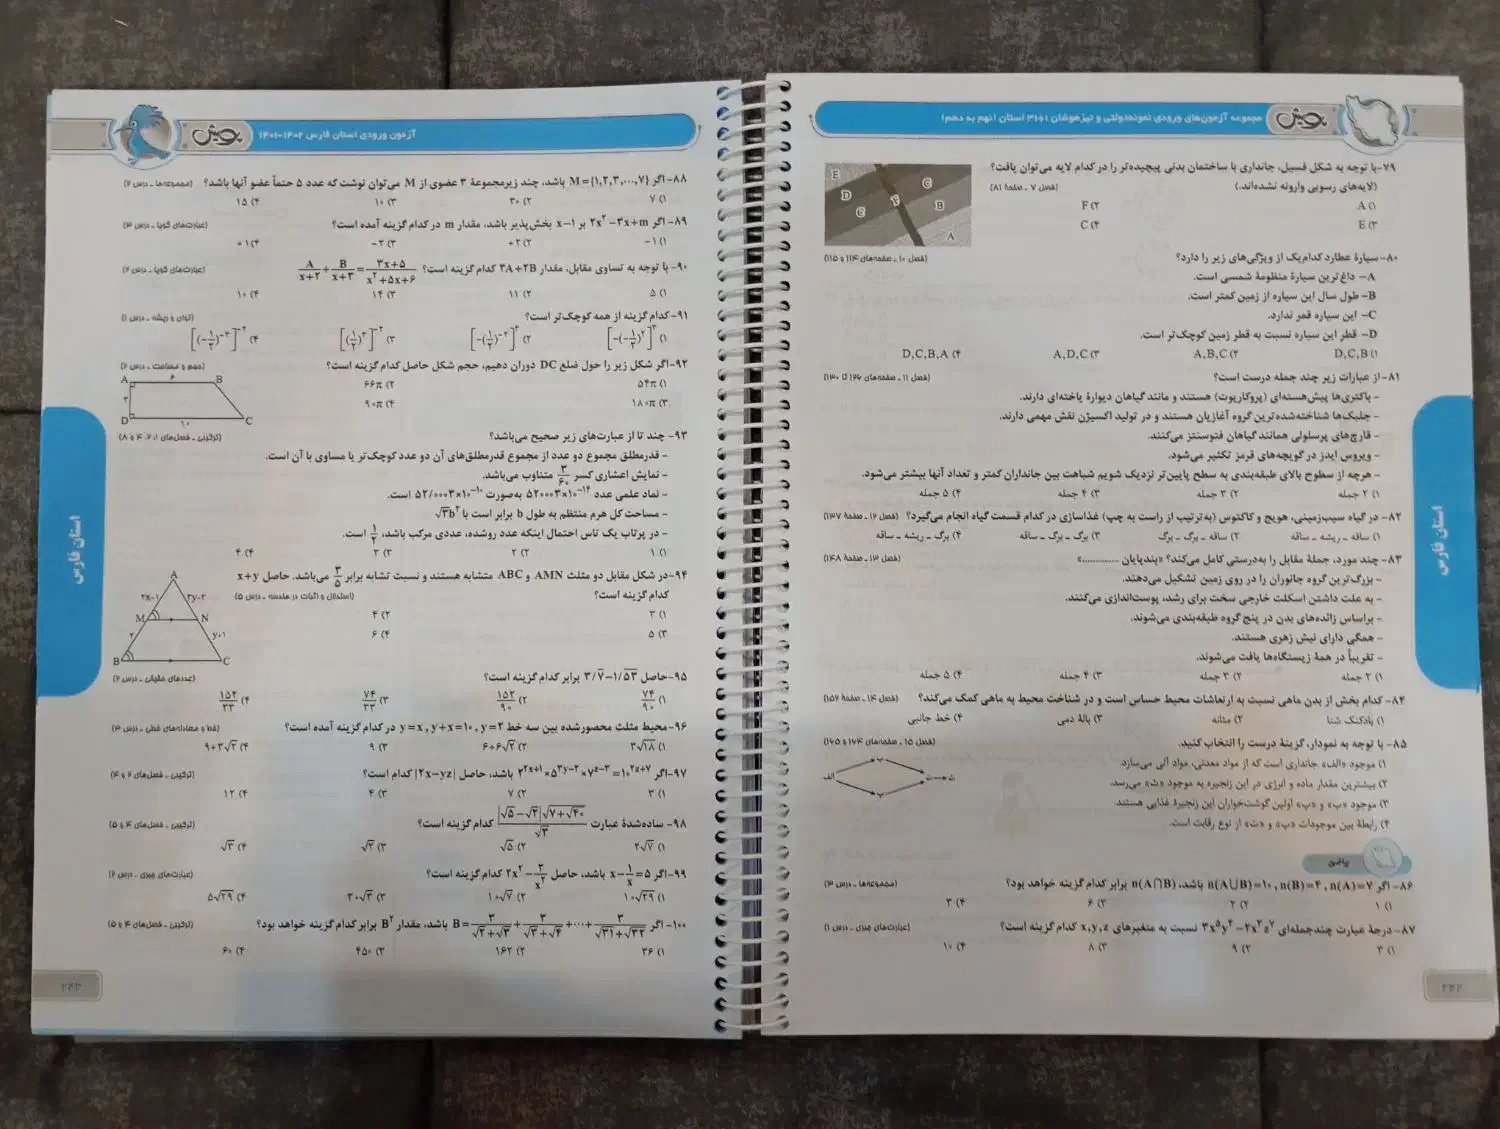 مجموعه آزمون‌های ورودی نمونه‌دولتی و تیزهوشان ۱+۳۱ استان (نهم به دهم)
پویش
۷۹- با توجه به شکل فسیل، جانداری با ساختمان بدنی پیچیده‌تر را در کدام لایه می‌توان یافت؟
(لایه‌های رسوبی وارونه نشده‌اند.)
(فصل ۷ ـ صفحهٔ ۸۱)
۱) A
۲) F
۳) E
۴) C
E
D
C
F
C
B
A
۸۰- سیارهٔ عطارد کدام‌یک از ویژگی‌های زیر را دارد؟
(فصل ۱۰ ـ صفحه‌های ۱۱۴ و ۱۱۵)
A- داغ‌ترین سیارهٔ منظومهٔ شمسی است.
B- طول سال این سیاره از زمین کمتر است.
C- این سیاره قمر ندارد.
D- قطر این سیاره نسبت به قطر زمین کوچک‌تر است.
۱) D,C,B
۲) A,B,C
۳) A,D,C
۴) D,C,B,A
۸۱- از عبارات زیر چند جمله درست است؟
(فصل ۱۱ ـ صفحه‌های ۱۲۶ تا ۱۳۰)
- باکتری‌ها پیش‌هسته‌ای (پروکاریوت) هستند و مانند گیاهان دیوارهٔ یاخته‌ای دارند.
- جلبک‌ها شناخته‌شده‌ترین گروه آغازیان هستند و در تولید اکسیژن نقش مهمی دارند.
- قارچ‌های پرسلولی همانند گیاهان فتوسنتز می‌کنند.
- ویروس ایدز در گویچه‌های قرمز تکثیر می‌شود.
- هرچه از سطوح بالای طبقه‌بندی به سطح پایین‌تر نزدیک شویم شباهت بین جانداران کمتر و تعداد آنها بیشتر می‌شود.
۱) ۲ جمله
۲) ۳ جمله
۳) ۴ جمله
۴) ۵ جمله
۸۲- در گیاه سیب‌زمینی، هویج و کاکتوس (به‌ترتیب از راست به چپ) غذاسازی در کدام قسمت گیاه انجام می‌گیرد؟
(فصل ۱۲ ـ صفحهٔ ۱۳۷)
۱) ساقه ـ ریشه ـ ساقه
۲) ساقه ـ برگ ـ برگ
۳) برگ ـ برگ ـ ساقه
۴) برگ ـ ریشه ـ ساقه
۸۳- چند مورد، جملهٔ مقابل را به‌درستی کامل می‌کند؟ «بندپایان ..............»
(فصل ۱۳ ـ صفحهٔ ۱۴۸)
- بزرگ‌ترین گروه جانوران را در روی زمین تشکیل می‌دهند.
- به علت داشتن اسکلت خارجی سخت برای رشد، پوست‌اندازی می‌کنند.
- براساس زائده‌های بدن در پنج گروه طبقه‌بندی می‌شوند.
- همگی دارای نیش زهری هستند.
- تقریباً در همهٔ زیستگاه‌ها یافت می‌شوند.
۱) ۲ جمله
۲) ۳ جمله
۳) ۴ جمله
۴) ۵ جمله
۸۴- کدام بخش از بدن ماهی نسبت به ارتعاشات محیط حساس است و در شناخت محیط به ماهی کمک می‌کند؟
(فصل ۱۴ ـ صفحهٔ ۱۵۲)
۱) بادکنک شنا
۲) مثانه
۳) بالهٔ دمی
۴) خط جانبی
۸۵- با توجه به نمودار، گزینهٔ درست را انتخاب کنید.
(فصل ۱۵ ـ صفحه‌های ۱۶۴ و ۱۶۵)
۱) موجود «الف» جانداری است که از مواد معدنی، مواد آلی می‌سازد.
۲) بیشترین مقدار ماده و انرژی در این زنجیره به موجود «ث» می‌رسد.
۳) موجود «ب» و «پ» اولین گوشت‌خواران این زنجیرهٔ غذایی هستند.
۴) رابطهٔ بین موجودات «پ» و «ت» از نوع رقابت است.
الف
ب
پ
ت
ث
ریاضی
۸۶- اگر n(A)=۷ , n(B)=۴ , n(A∪B)=۱۰ باشد، n(A∩B) برابر کدام گزینه خواهد بود؟
(مجموعه‌ها ـ درس ۳)
۱) ۱
۲) ۲
۳) ۶
۴) ۳
۸۷- درجهٔ عبارت چندجمله‌ای ۳x⁵y⁴−۲x³z⁷ نسبت به متغیرهای x,y,z کدام گزینه است؟
(عبارت‌های جبری ـ درس ۱)
۱) ۳
۲) ۹
۳) ۸
۴) ۱۰
استان فارس
۲۴۲
آزمون ورودی استان فارس ۱۴۰۲-۱۴۰۱
پویش
۸۸- اگر M={۱,۲,۳,...,۷} باشد، چند زیرمجموعهٔ ۳ عضوی از M می‌توان نوشت که عدد ۵ حتماً عضو آنها باشد؟
(مجموعه‌ها ـ درس ۲)
۱) ۷
۲) ۳۰
۳) ۱۰
۴) ۱۵
۸۹- اگر ۲x²−۳x+m بر x−۱ بخش‌پذیر باشد، مقدار m در کدام گزینه آمده است؟
(عبارت‌های گویا ـ درس ۳)
۱) −۱
۲) +۲
۳) −۲
۴) +۱
۹۰- با توجه به تساوی مقابل، مقدار ۳A+۲B کدام گزینه است؟ A/(x+۲) + B/(x+۳) = (۳x+۵)/(x²+۵x+۶)
(عبارت‌های گویا ـ درس ۲)
۱) ۵
۲) ۱۱
۳) ۱۴
۴) ۱۰
۹۱- کدام گزینه از همه کوچک‌تر است؟
(توان و ریشه ـ درس ۱)
۱) [−(−۱/۲)²]³
۲) [−(۱/۲)⁻²]³
۳) [(۱/۲)³]⁻²
۴) [(−۱/۲)⁻³]⁻²
۹۲- اگر شکل زیر را حول ضلع DC دوران دهیم، حجم شکل حاصل کدام گزینه است؟
(حجم و مساحت ـ درس ۲)
۱) ۵۴π
۲) ۶۶π
۳) ۱۸۰π
۴) ۹۰π
A
۶
B
۳
D
۱۰
C
۹۳- چند تا از عبارت‌های زیر صحیح می‌باشد؟
(ترکیبی ـ فصل‌های ۱، ۲، ۴ و ۸)
- قدرمطلق مجموع دو عدد از مجموع قدرمطلق‌های آن دو عدد کوچک‌تر یا مساوی با آن است.
- نمایش اعشاری کسر ۳/۶۰ متناوب می‌باشد.
- نماد علمی عدد ۵۲۰۰۰۳×۱۰⁻¹⁴ به‌صورت ۵۲/۰۰۰۳×۱۰⁻¹⁰ است.
- مساحت کل هرم منتظم به طول b برابر است با √۳b²
- در پرتاب یک تاس احتمال اینکه عدد روشده، عددی مرکب باشد، ۱/۲ است.
۱) ۱
۲) ۲
۳) ۳
۴) ۴
۹۴- در شکل مقابل دو مثلث AMN و ABC متشابه هستند و نسبت تشابه برابر ۳/۵ می‌باشد. حاصل x+y
کدام گزینه است؟
(استدلال و اثبات در هندسه ـ درس ۵)
۱) ۳
۲) ۴
۳) ۵
۴) ۶
A
۲x−۱
۳y−۳
M
N
۲
y+۱
B
C
۹۵- حاصل ۳/۷̄−۱/۵۳̄ برابر کدام گزینه است؟
(عددهای حقیقی ـ درس ۲)
۱) ۷۴/۹۰
۲) ۱۵۲/۹۰
۳) ۷۴/۳۳
۴) ۱۵۲/۳۳
۹۶- محیط مثلث محصورشده بین سه خط y=x , y+x=۱۰ , y=۲ در کدام گزینه آمده است؟
(خط و معادله‌های خطی ـ درس ۳)
۱) ۳√۱۸
۲) ۶+۶√۲
۳) ۹
۴) ۹+۳√۲
۹۷- اگر ۲²ˣ⁺¹×۵³ʸ⁻²×۷ᶻ⁻³=۱۰²ᶻ⁺⁷ باشد، حاصل |۲x−yz| کدام است؟
(ترکیبی ـ فصل‌های ۲ و ۴)
۱) ۳
۲) ۷
۳) ۴
۴) ۱۲
۹۸- ساده‌شدهٔ عبارت |√۵−√۲|√(۷+√۴۰)/√۳ کدام گزینه است؟
(ترکیبی ـ فصل‌های ۴ و ۵)
۱) ۲√۷
۲) √۵
۳) √۲
۴) √۳
۹۹- اگر x−۱/x=۵ باشد، حاصل ۲x²−۲/x² کدام گزینه است؟
(عبارت‌های جبری ـ درس ۲)
۱) ۱۰√۲۹
۲) ۱۰√۷
۳) ۳۰√۳
۴) ۵√۲۹
۱۰۰- اگر B=۳/(√۲+√۳)+۳/(√۳+√۴)+...+۳/(√۳۱+√۳۲) باشد، مقدار B² برابر کدام گزینه خواهد بود؟
(ترکیبی ـ فصل‌های ۴ و ۵)
۱) ۳۶
۲) ۱۶۲
۳) ۴۵۰
۴) ۶۰
استان فارس
۲۴۳